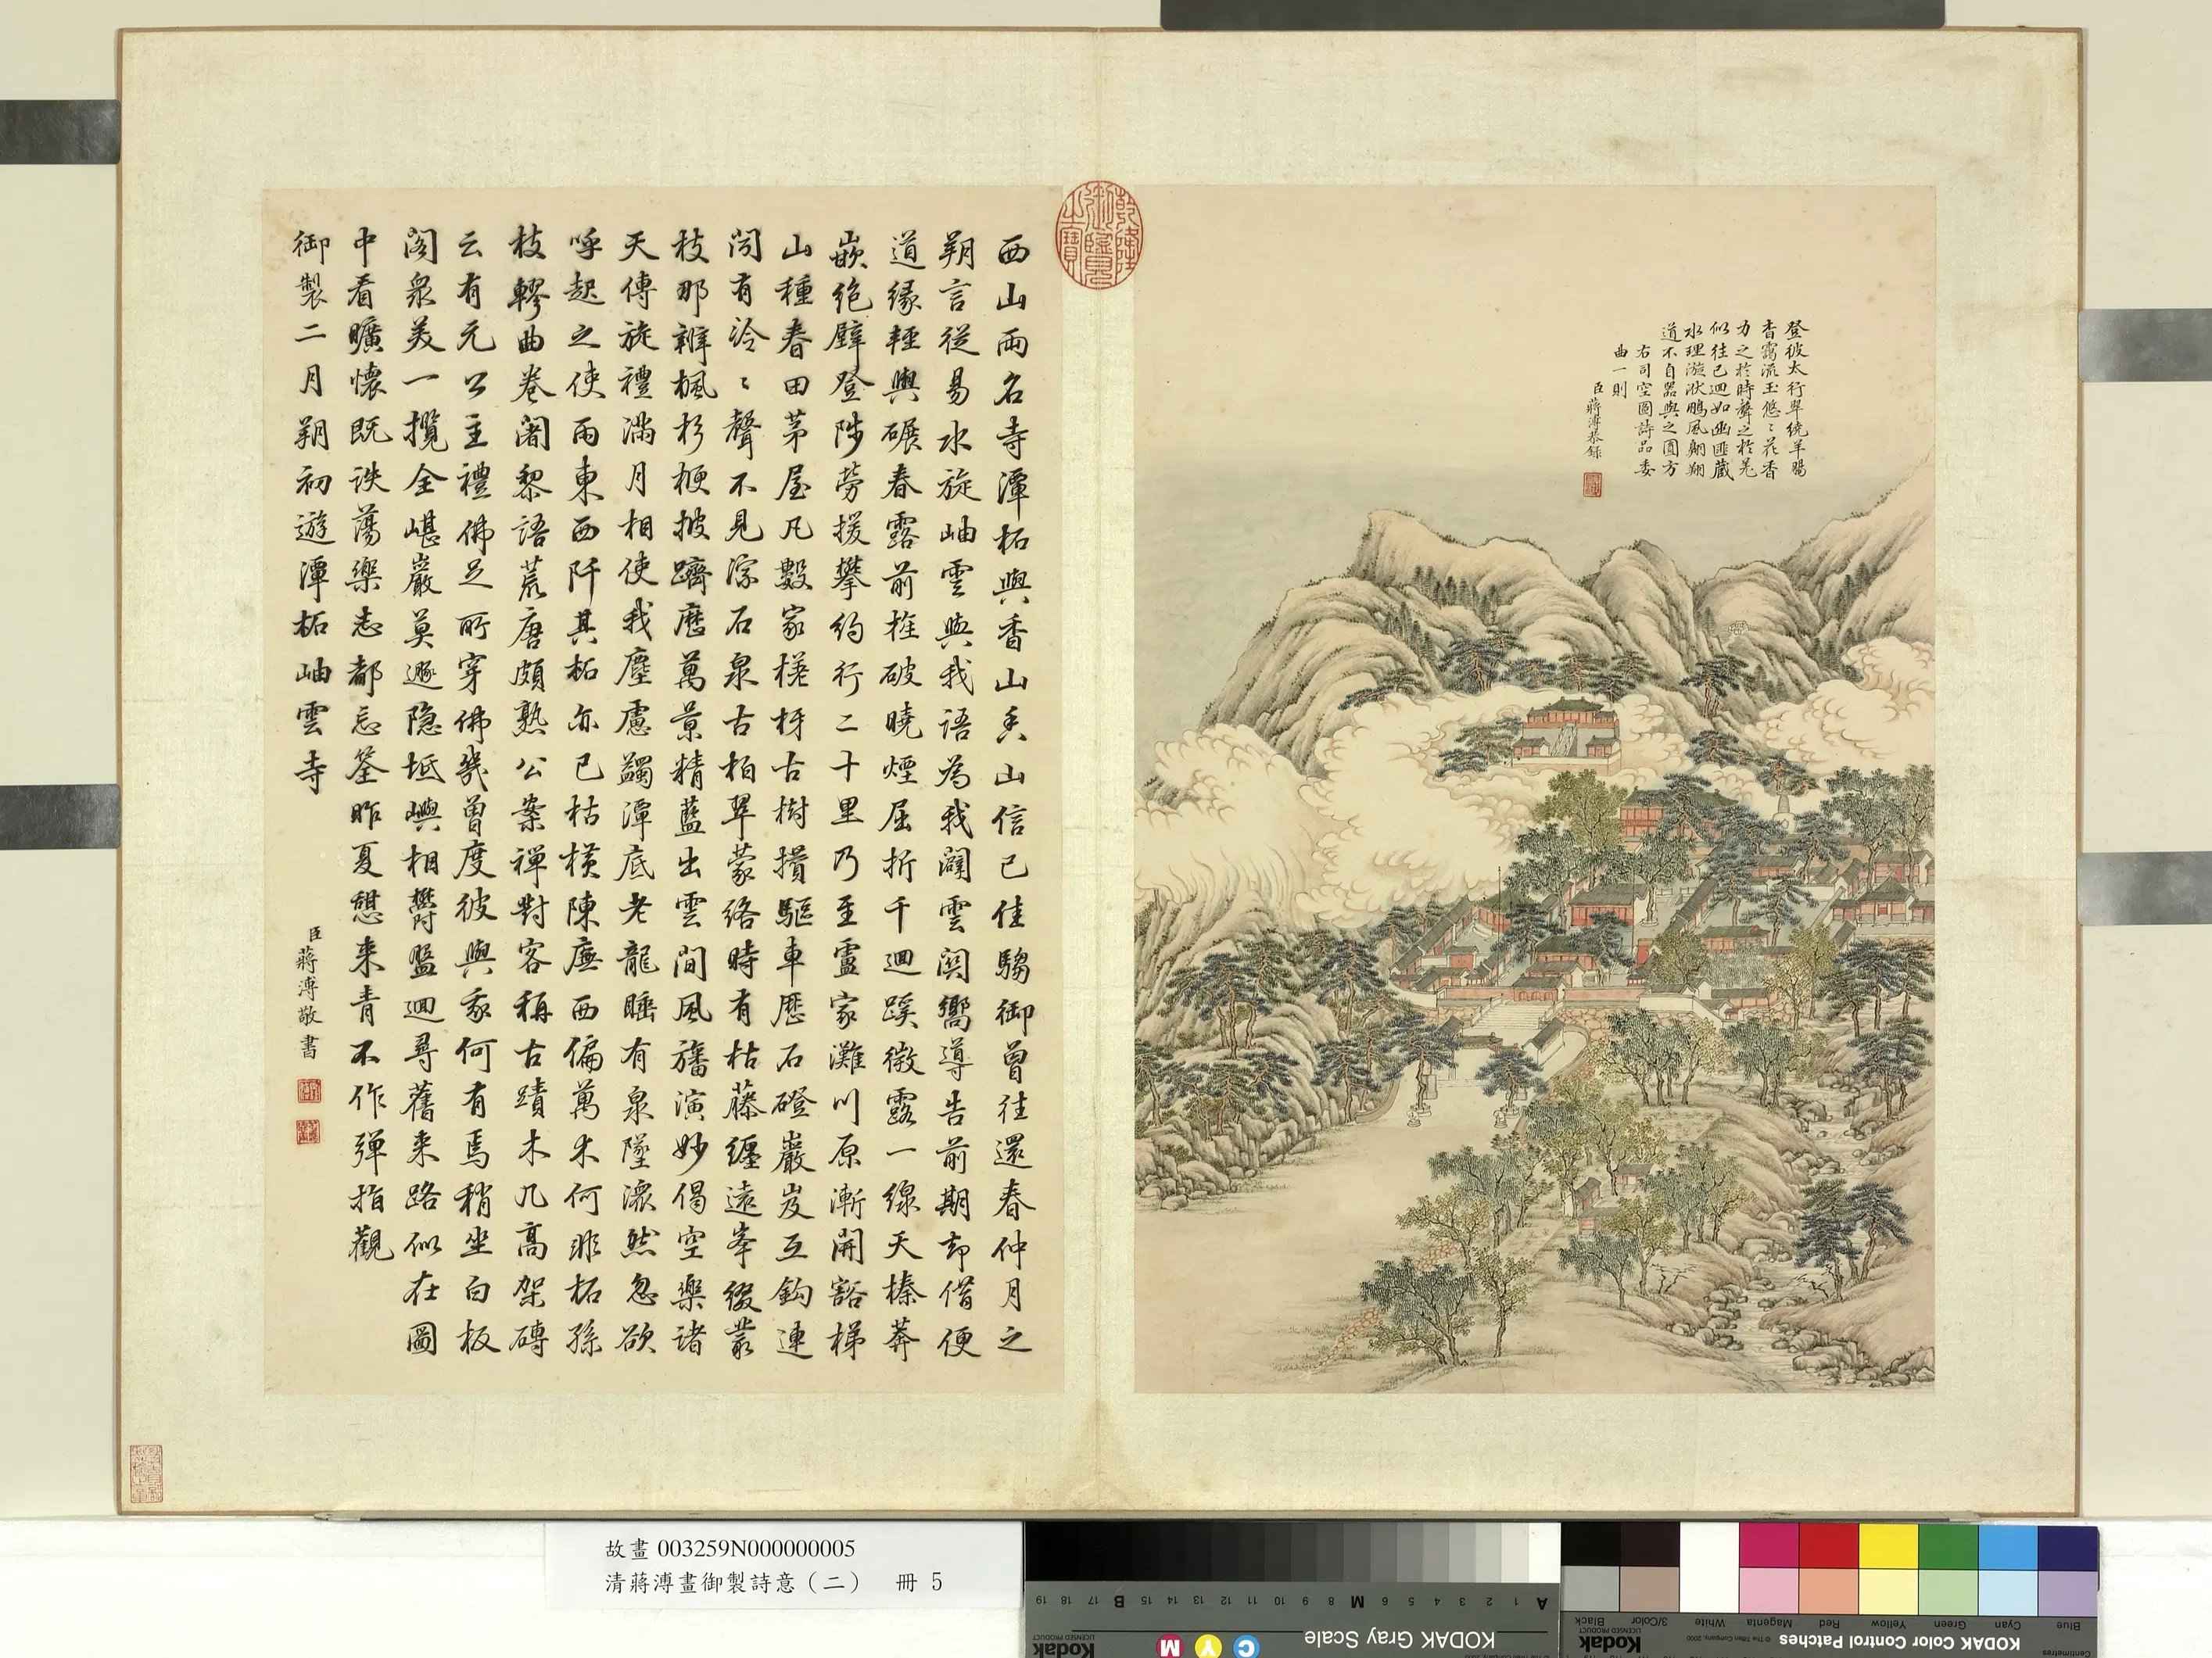 登彼太行翠繞羊腸
杳靄流玉悠〻花香
力之於時聲之於羌
似往已迴如幽匪藏
水理漩洑鵬風翱翔
道不自器與之圓方
右司空圖詩品委
曲一則
臣蔣溥恭錄
西山兩名寺潭柘與香山香山信已佳騶御曾往還春仲月之
朔言從易水旋岫雲與我語為我闢雲関嚮導告前期却借便
道緣輕輿碾春露前旌破曉煙屈折千迴蹊微露一線天榛莽
嵌絶壁登陟勞援攀約行二十里乃至盧家灘川原漸開豁梯
山種春田茅屋凡數家槎枒古樹攢驅車歷石磴巖岌互鈎連
問有泠〻聲不見淙石泉古柏翠蒙絡時有枯藤纏遠峯綴叢
枝那辨楓杉楩披躋歷萬景精藍出雲間風旛演妙偈空樂諸
天傳旋禮滿月相使我塵慮蠲潭底老龍睡有泉墜濃然忽欲
呼起之使雨東西阡其柘亦已枯橫陳廡西偏萬木何非柘孫
枝轇曲卷闍黎語荒唐頗熟公案禪對客稱古蹟木几高架磚
云有元公主禮佛足所穿佛幾曾度彼與象何有焉稍坐白板
閣衆美一攬全嵁巖莫遯隐坻嶼相欎盤迴尋舊来路似在圖
中看曠懷既詄蕩樂志都忘筌昨夏憩来青不作彈指觀
御製二月朔初遊潭柘岫雲寺
臣蔣溥敬書
乾隆御覽之寶
故畫 003259N000000005
清蔣溥畫御製詩意（二） 冊 5
KODAK Gray Scale
Kodak
LICENSED PRODUCT
A 1 2 3 4 5 6 M 8 9 10 11 12 13 14 15 B 17 18 19
C Y M
KODAK Color Control Patches
© The Tiffen Company, 2000
Kodak
LICENSED PRODUCT
Centimetres
Blue Cyan Green Yellow Red Magenta White 3/Color Black